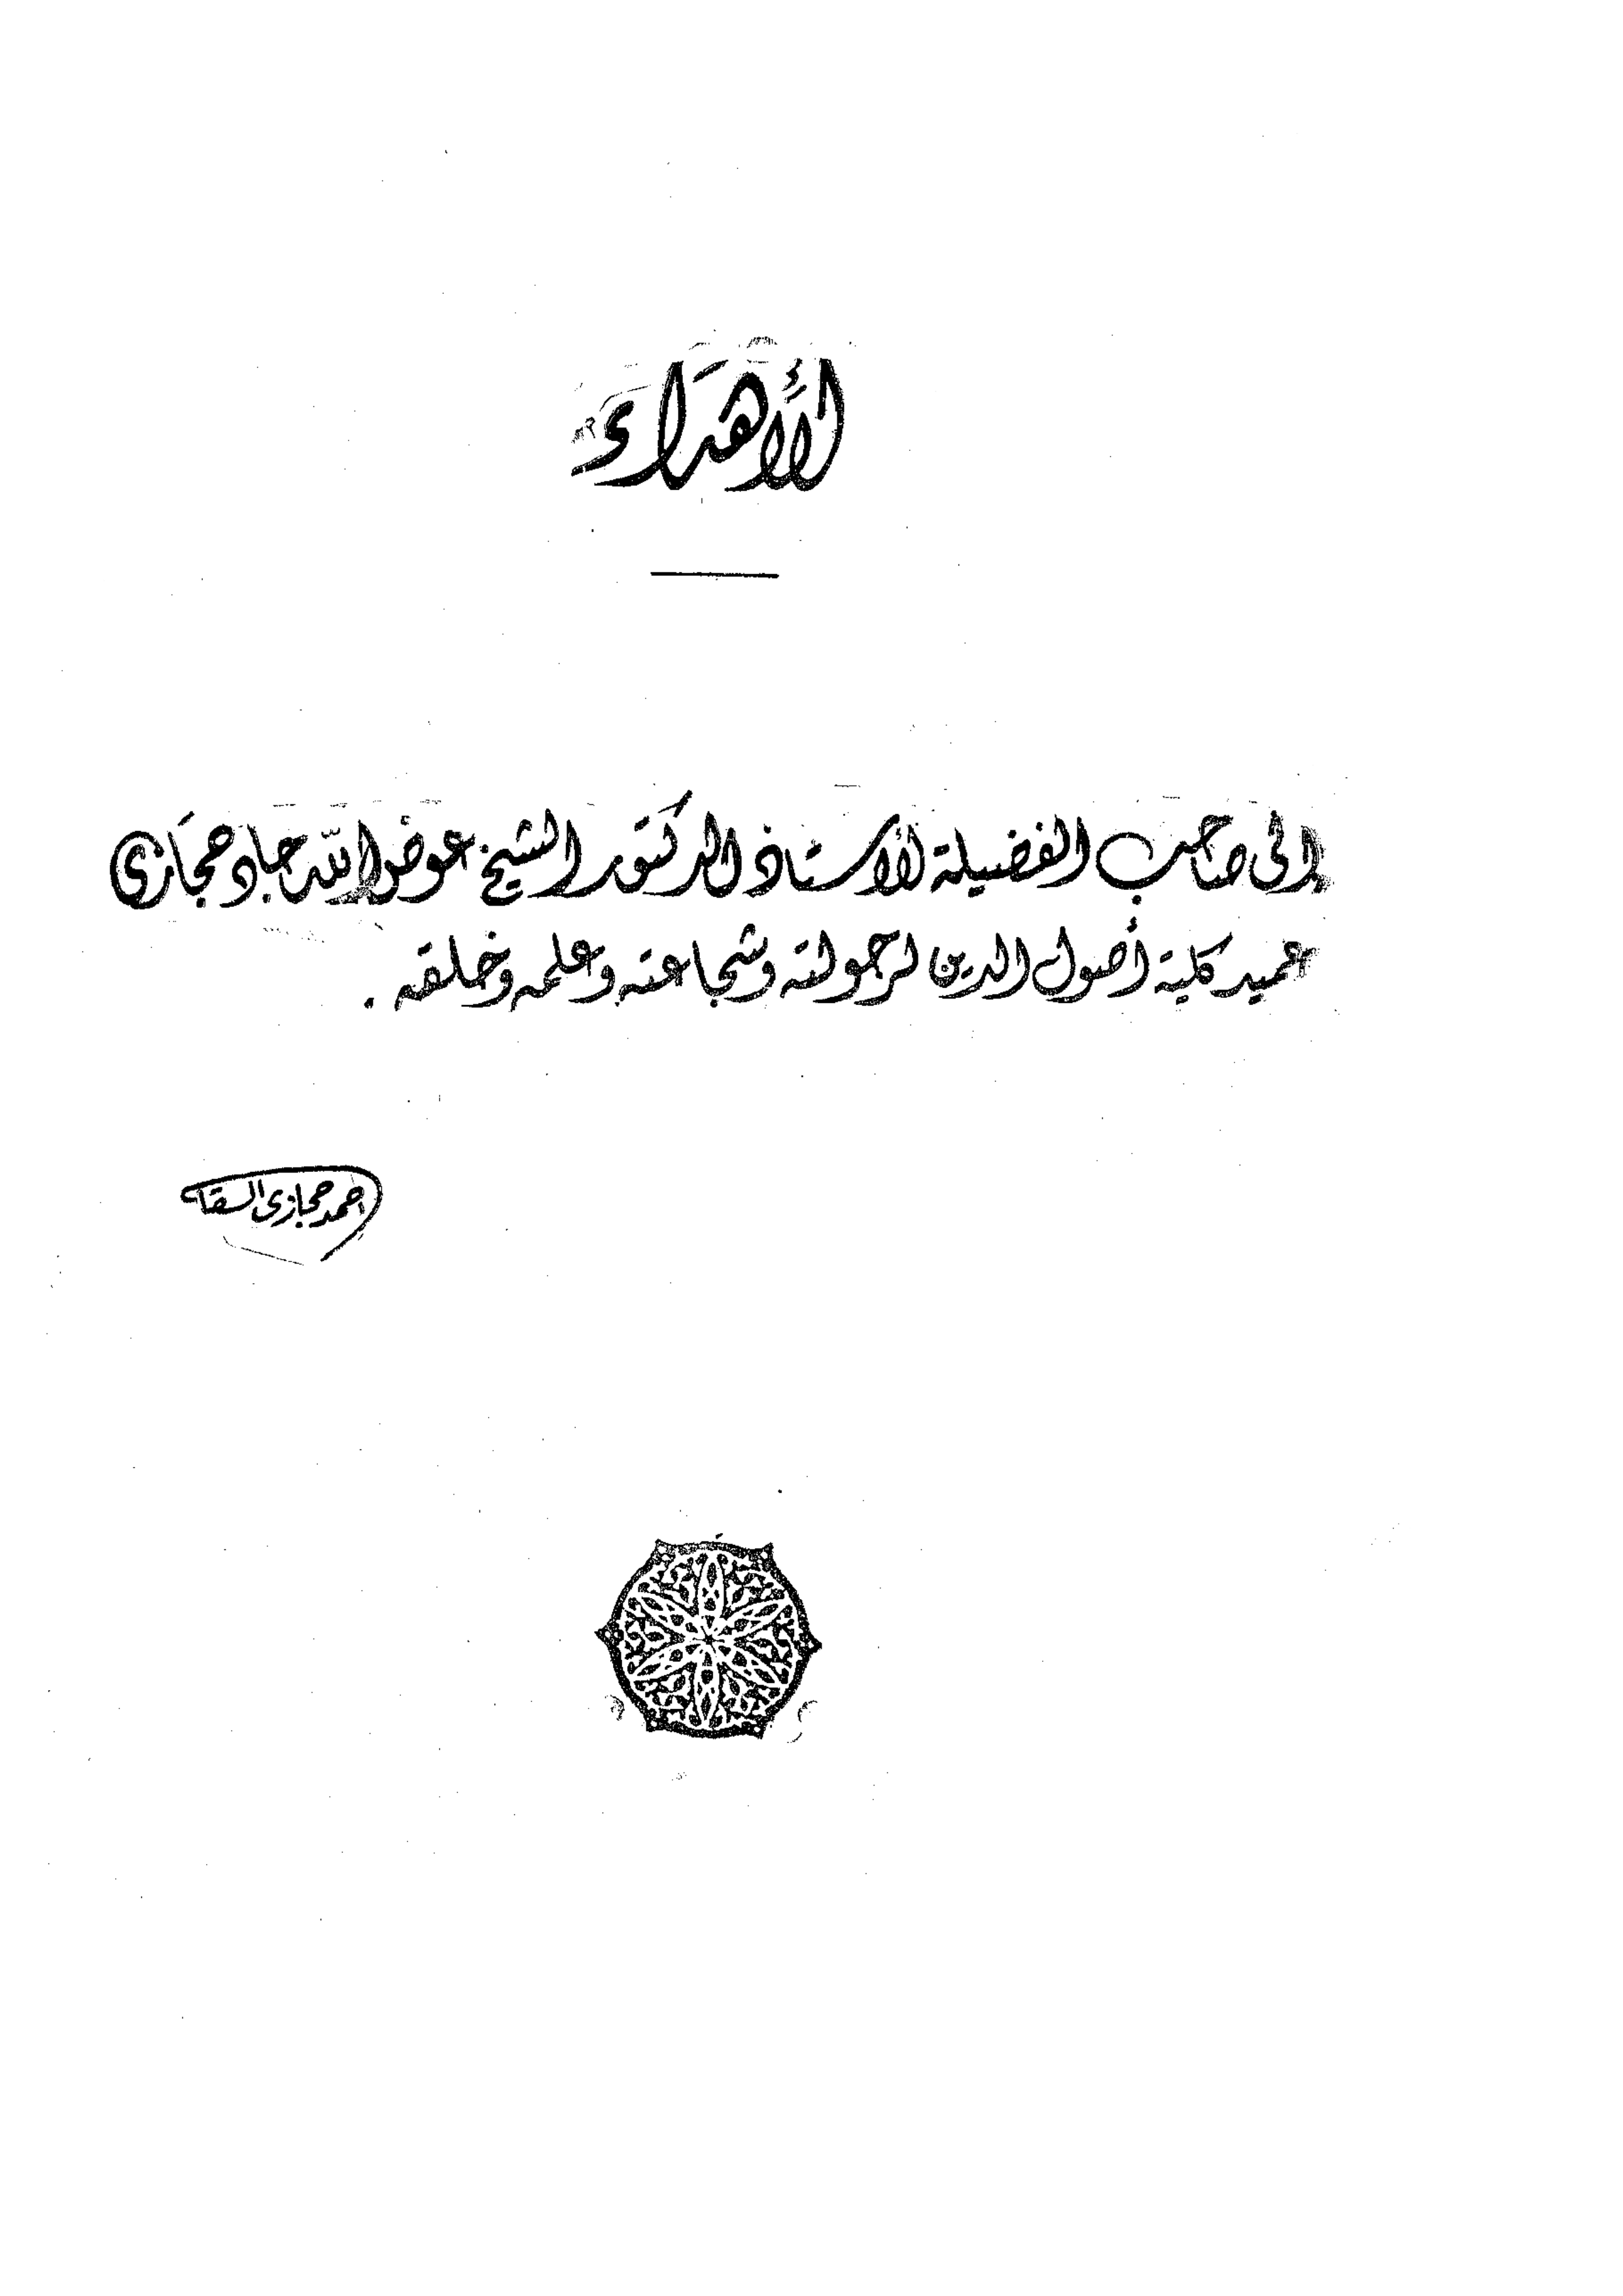 الأهداء
إلى صاحب الفضيلة الأستاذ الدكتور الشيخ عوض الله جاد حجازى
عميد كلية أصول الدين لرجولته وشجاعته وعلمه وخلقه .
احمد حجازى السقا